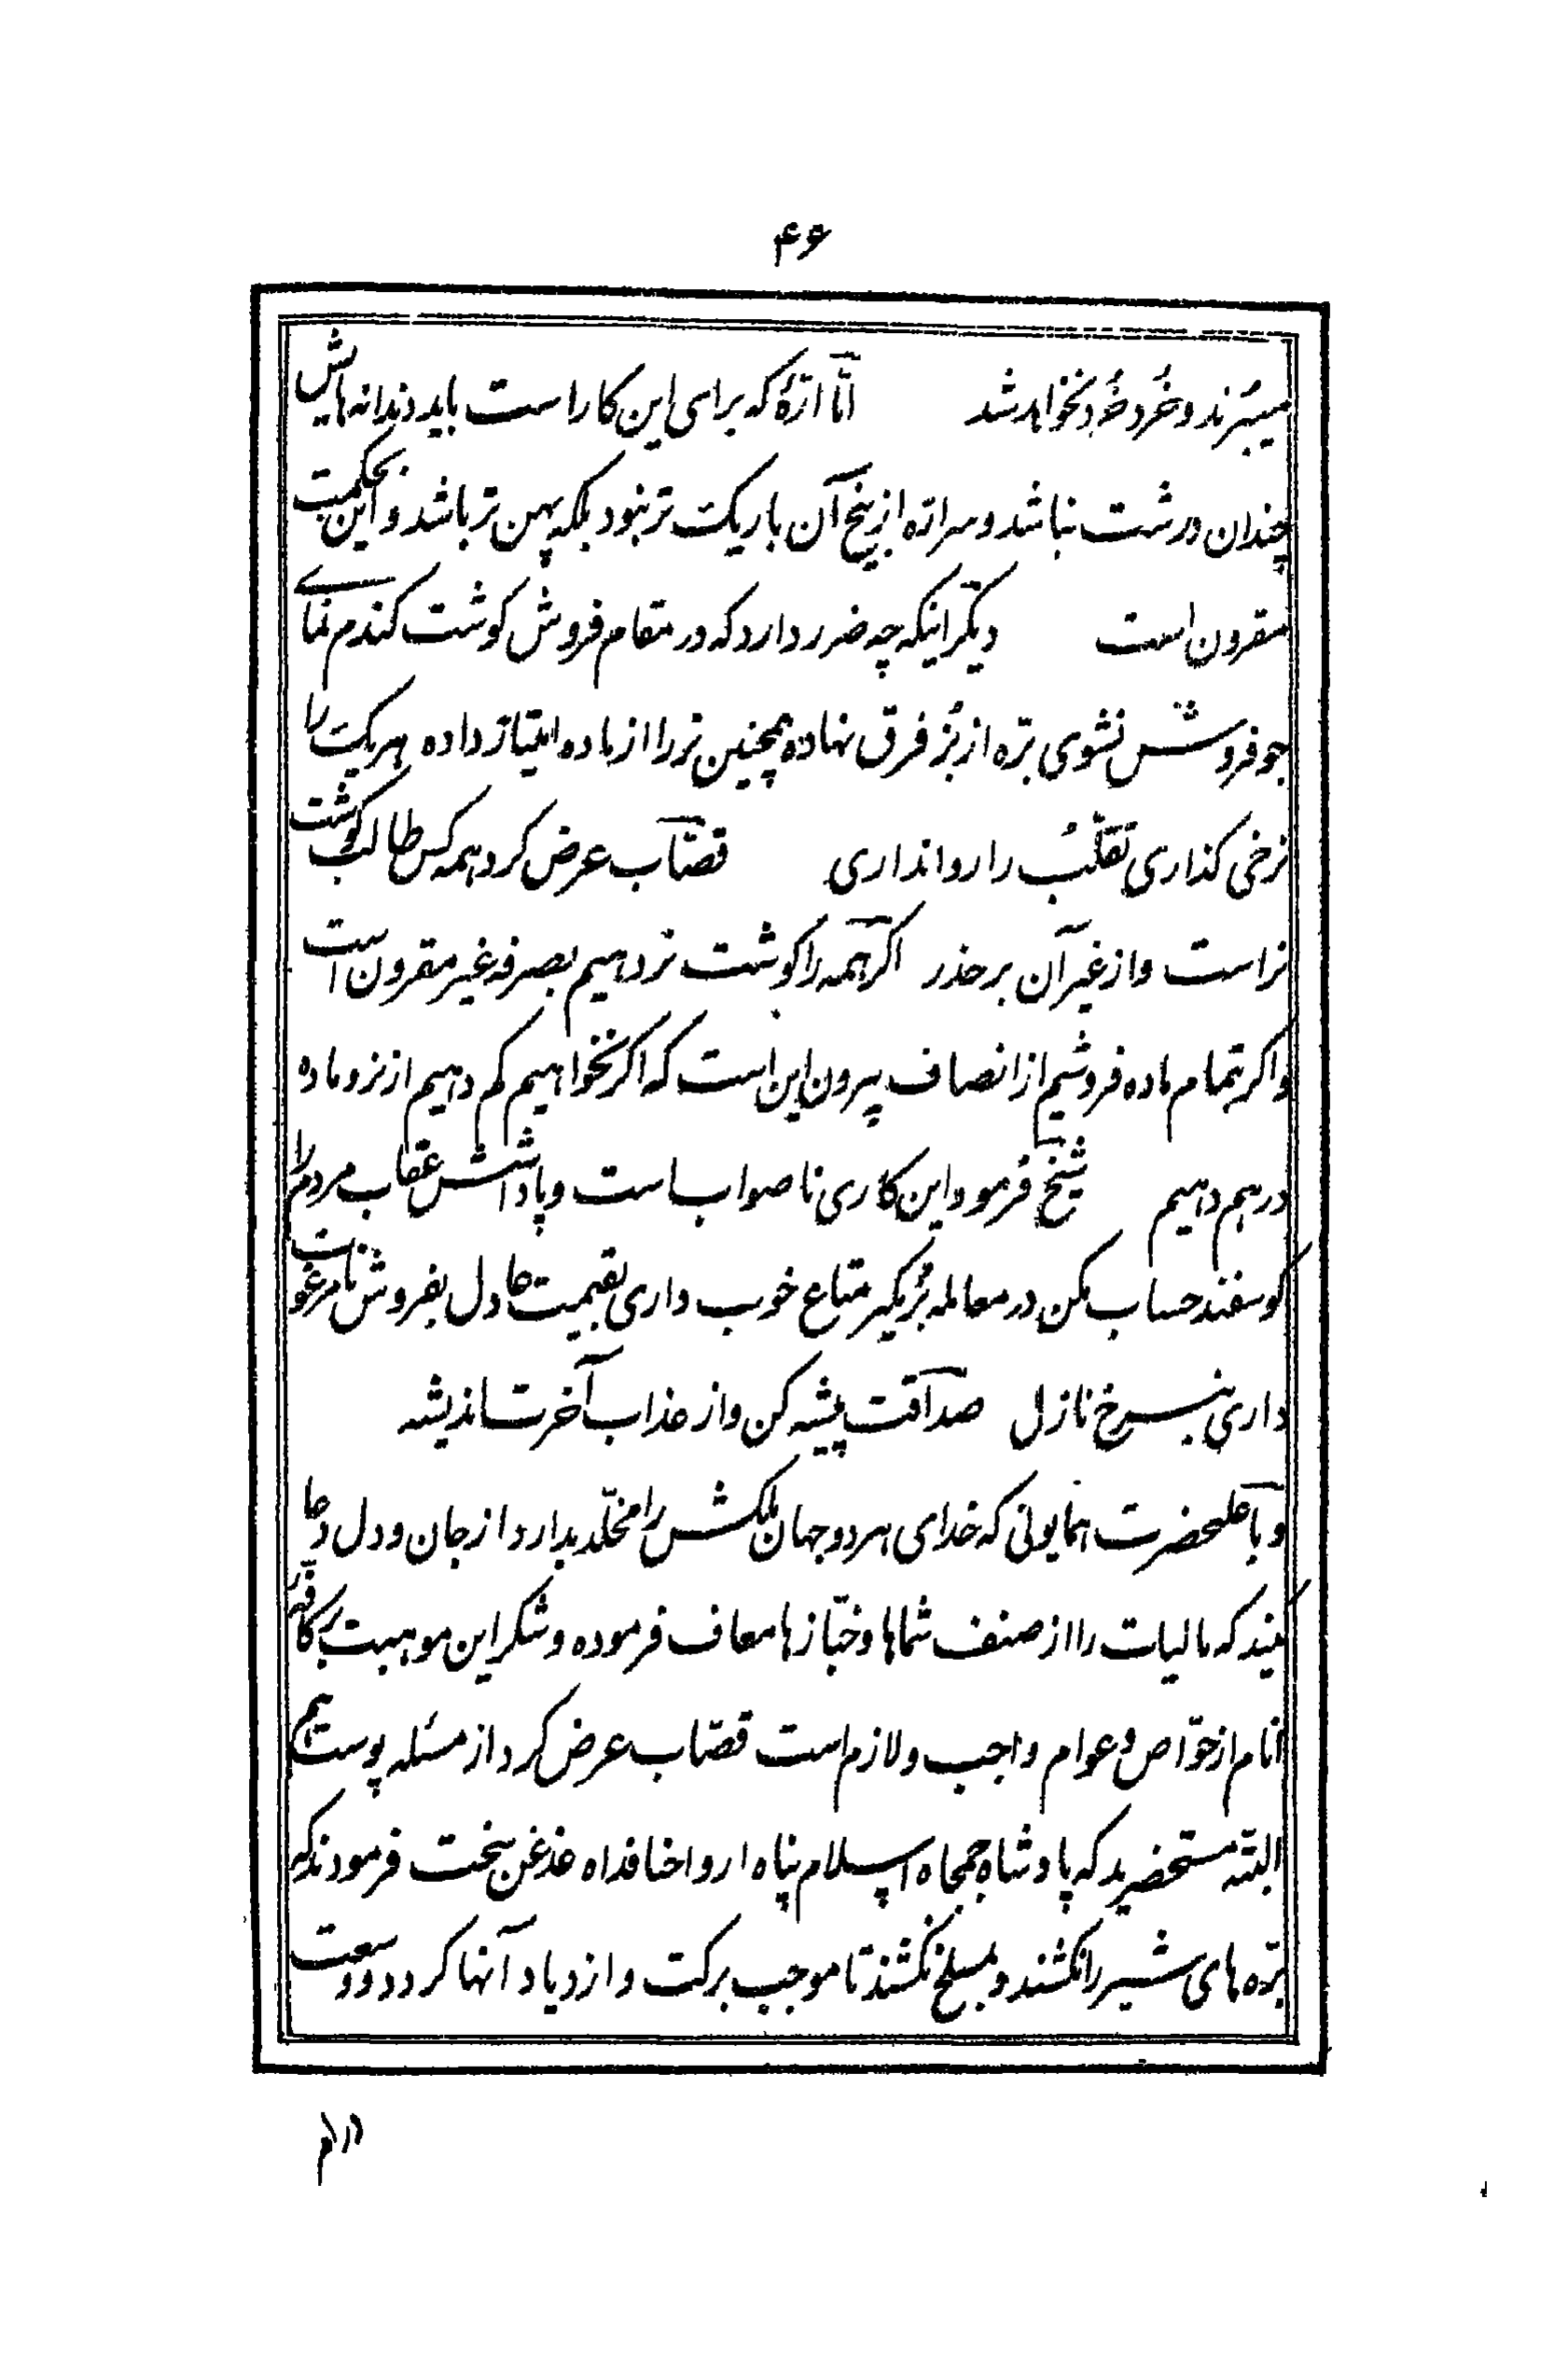 ۴۶
میبرند و خُرد خُرد نخواهد شد امّا ارّهٔ که برای این کار است باید دندانه هایش
چندان درشت نباشد و سر ارّه از بیخ آن باریک تر نبود بلکه پهن تر باشد و این بحکمت
مقرون است دیگر اینکه چه ضرر دارد که در مقام فروش گوشت گندم نمای
جو فروش نشوی برّه از بُز فرق نهاده همچنین نر را از ماده امتیاز داده هریک را
نرخی گذاری تقلّب را روا نداری قصّاب عرض کرد همه کس طالب گوشت
نر است و از غیر آن بر حذر اگر همه را گوشت نر دهیم بصرفه غیر مقرون است
و اگر تمام ماده فروشیم از انصاف بیرون این است که اگر نخواهیم کم دهیم از نر و ماده
در هم دهیم شیخ فرمود این کاری ناصواب است و پاداشش عقاب مردم را
گوسفند حساب مکن در معامله بُز مگیر متاع خوب داری بقیمت عادل بفروش نامرغوب
داری بنرخ نازل صداقت پیشه کن و از عذاب آخرت اندیشه
و باعلیحضرت همایونی که خدای هر دو جهان ملکش را مخلّد بدارد از جان و دل دعا
کنید که مالیات را از صنف شماها و خبّازها معاف فرموده و شکر این موهبت بر کافّه
انام از خوّاص و عوام واجب و لازم است قصّاب عرض کرد از مسئله پوست هم
البتّه مستحضرید که پادشاه جمجاه اسلام پناه ارواحنا فداه غدغن سخت فرمودند که
برّه های شیر را نکشند و بمسلخ نکشند تا موجب برکت و ازدیاد آنها گردد و وسعت
در ام